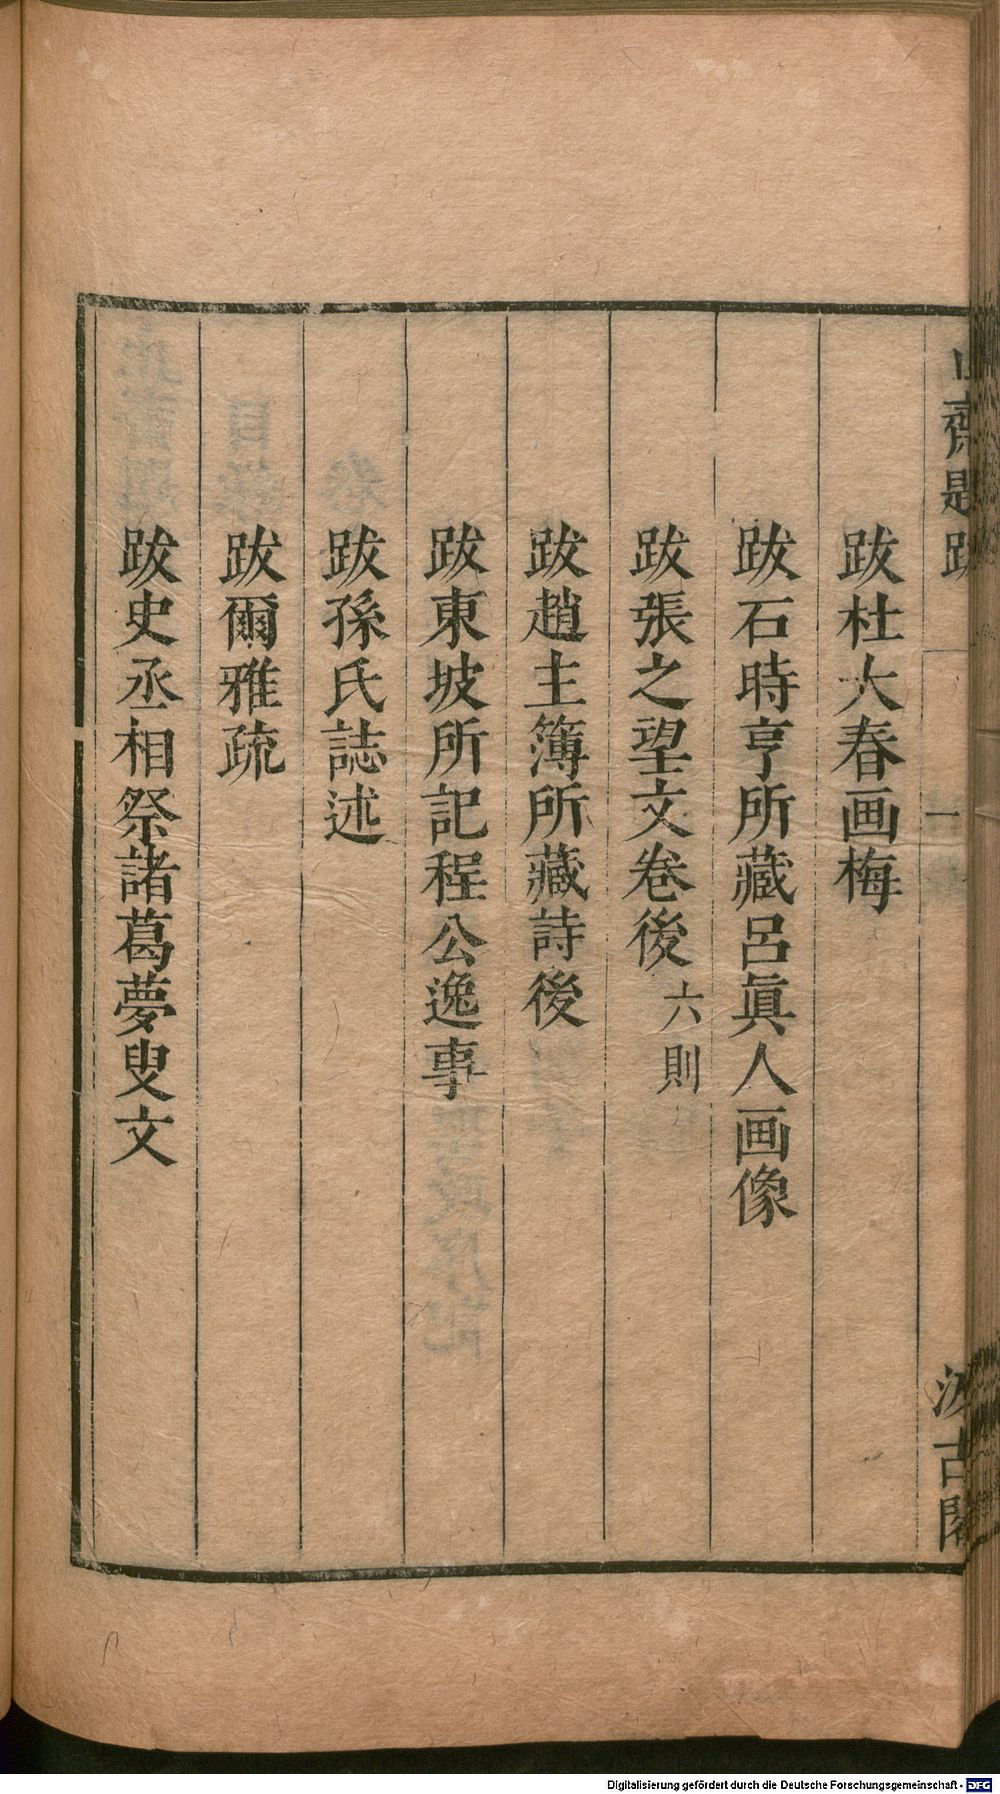 跋杜大春画梅
跋石時亨所藏呂眞人画像
跋張之望文卷後 六則
跋趙主簿所藏詩後
跋東坡所記程公逸事
跋孫氏誌述
跋爾雅疏
跋史丞相祭諸葛夢叟文
齋題跋
一
汲古閣
Digitalisierung gefördert durch die Deutsche Forschungsgemeinschaft - DFG